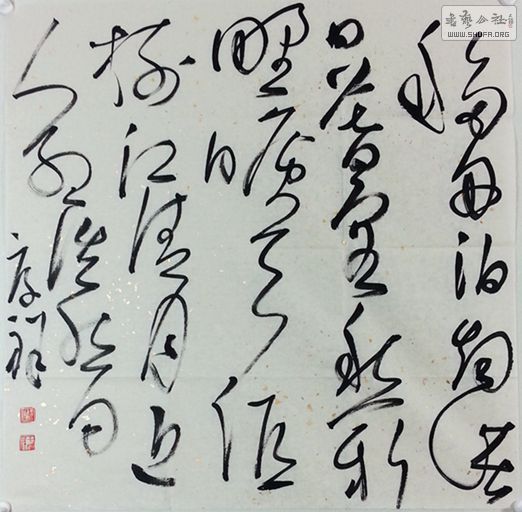 移舟泊烟渚
日暮客愁新
野旷天低
树江清月近
人孟浩然句
书艺公社
WWW.SHUFA.ORG